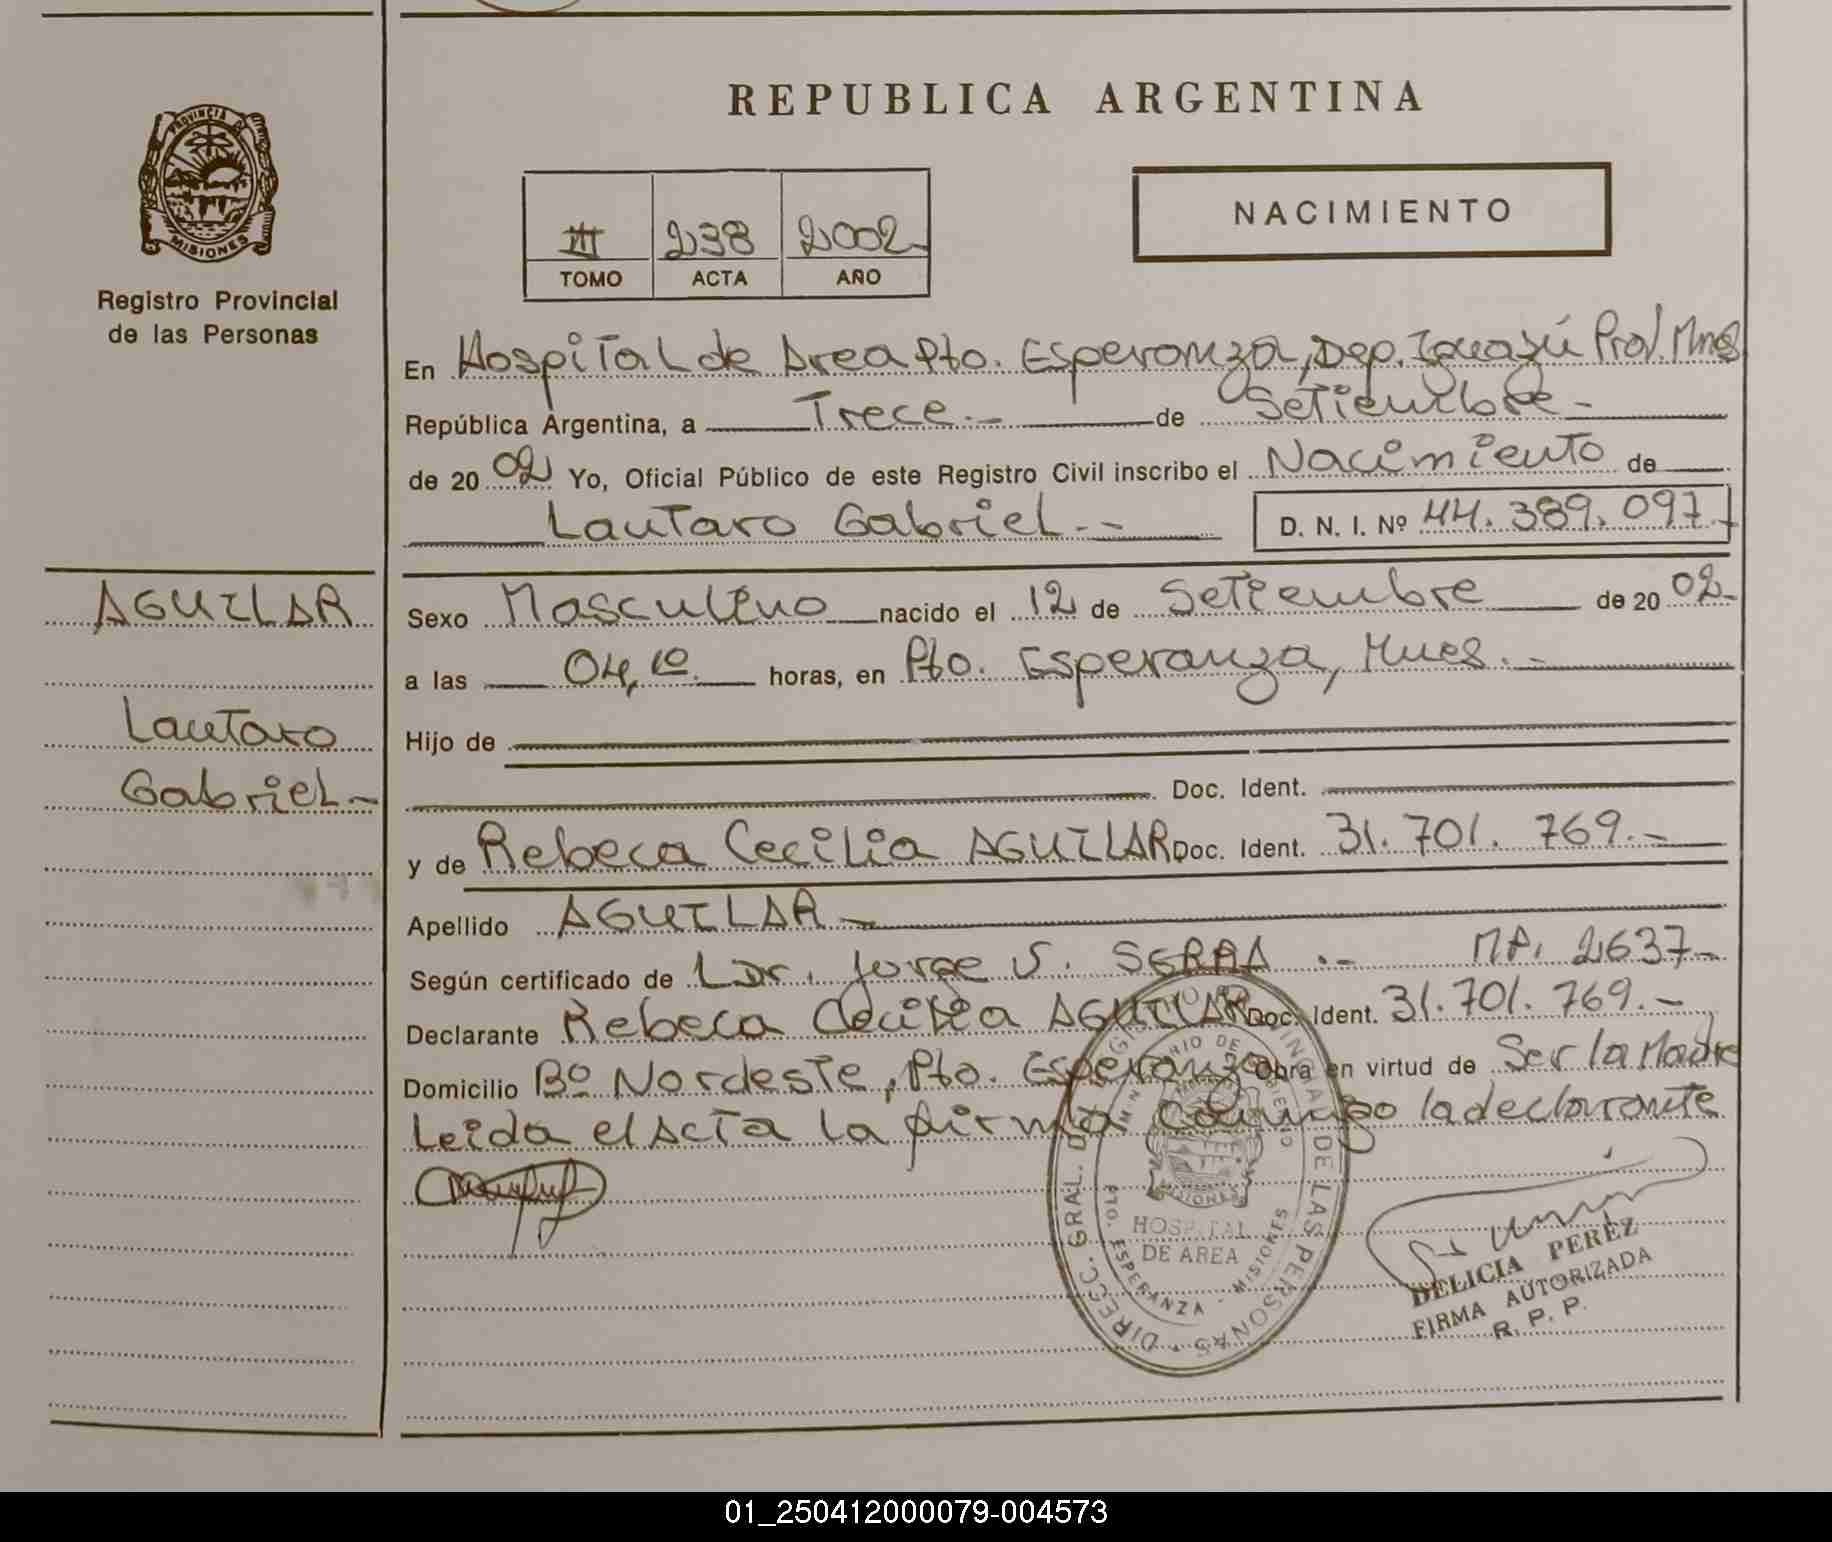 REPUBLICA ARGENTINA
PROVINCIA DE
MISIONES
Registro Provincial
de las Personas
III 238 2002
TOMO ACTA AÑO
NACIMIENTO
En Hospital de Area Pto. Esperanza, Dep. Iguazú Prov. Mnes
República Argentina, a Trece.- de Setiembre.-
de 20 02 Yo, Oficial Público de este Registro Civil inscribo el Nacimiento de
Lautaro Gabriel.-- D. N. I. Nº 44.389.097.-
AGUILAR
Lautaro
Gabriel.-
Sexo Masculino nacido el 12 de Setiembre de 20 02.-
a las 04,10. horas, en Pto. Esperanza, Mnes.-
Hijo de
Doc. Ident.
y de Rebeca Cecilia AGUILAR Doc. Ident. 31.701.769.-
Apellido AGUILAR.-
Según certificado de Dr. Jorge S. SERRA.- MP. 2637-
Declarante Rebeca Cecilia AGUILAR Doc. Ident. 31.701.769.-
Domicilio Bº Nordeste, Pto. Esperanza Obra en virtud de Ser la Madre
Leida el Acta la firma conmigo la declarante
DIRECC. GRAL. DE LAS PERSONAS
HOSPITAL
DE AREA
PTO. ESPERANZA - MISIONES
DELICIA PEREZ
FIRMA AUTORIZADA
R. P. P.
01_250412000079-004573